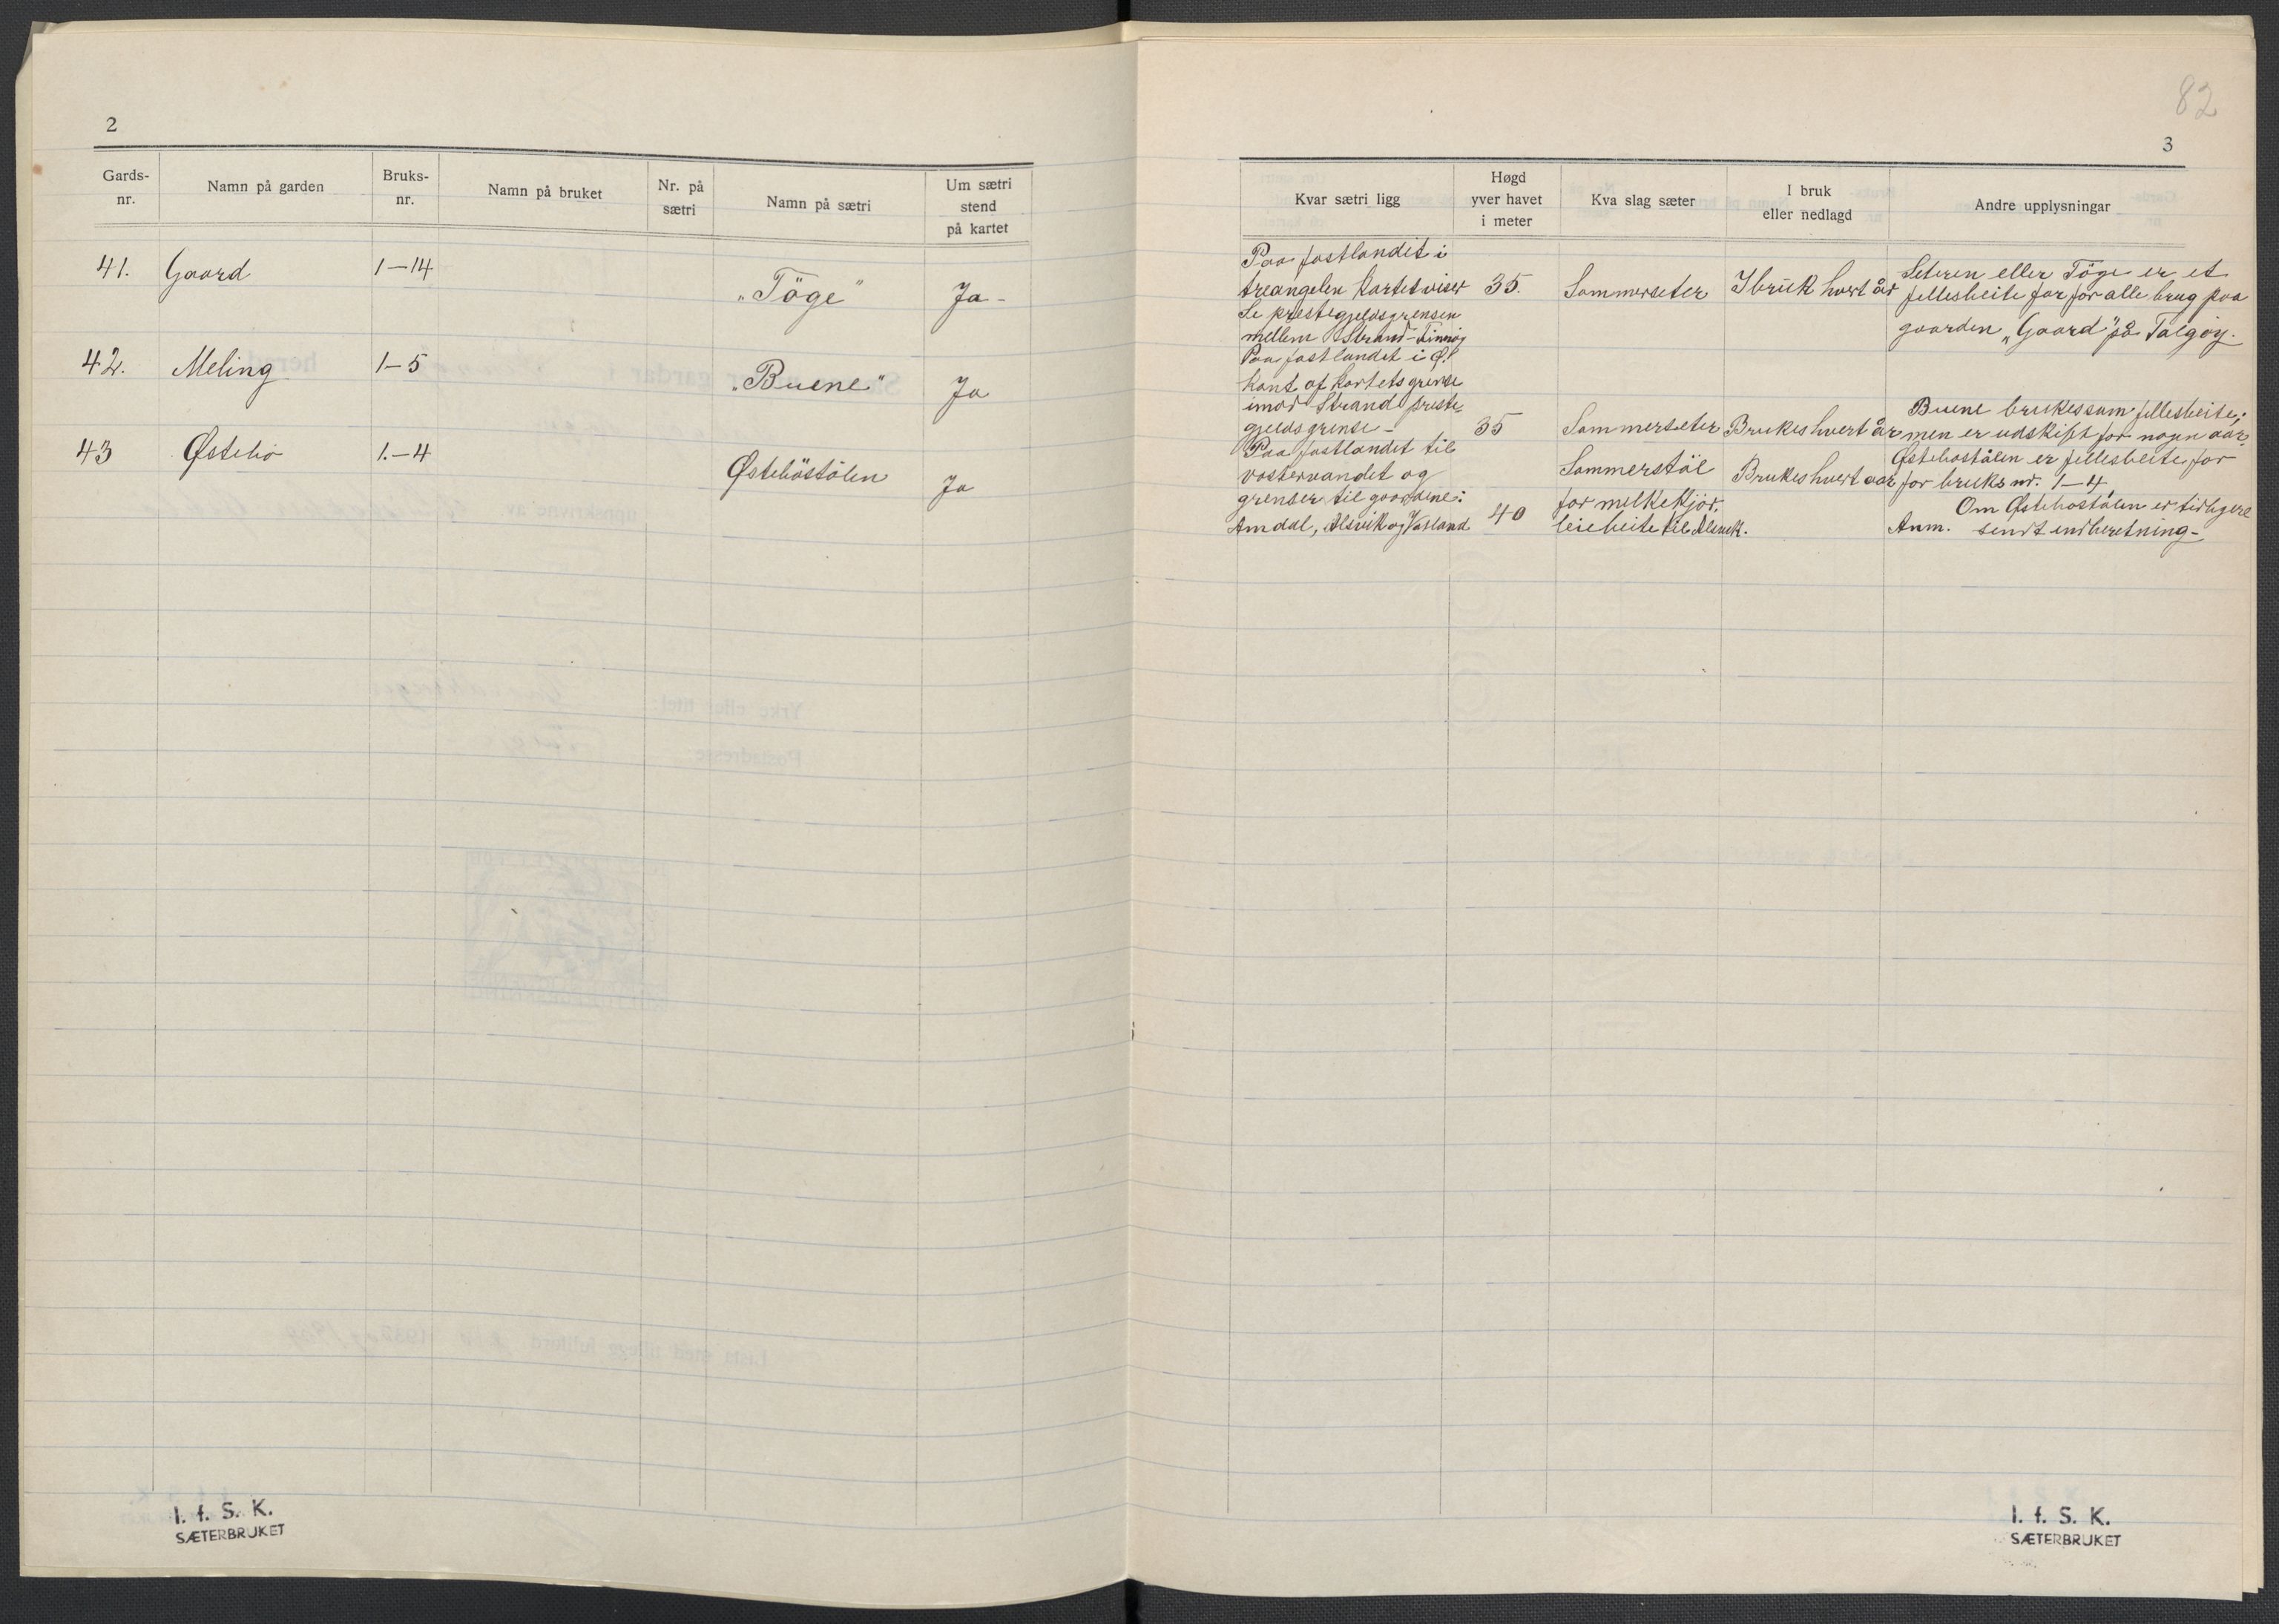 2
Gards-
nr.
Namn på garden
Bruks-
nr.
Namn på bruket
Nr. på
sætri
Namn på sætri
Um sætri
stend
på kartet
41. Gaard 1–14 „Töge" Ja –
42. Meling 1–5 „Buene" Ja
43 Østebö 1.–4 Østeböstölen Ja
I. f. S. K.
SÆTERBRUKET
82
3
Kvar sætri ligg
Høgd
yver havet
i meter
Kva slag sæter
I bruk
eller nedlagd
Andre upplysningar
Paa fastlandet i
treangelen kartet viser
Se prestegjeldsgrensen
mellem Strand–Finnöy
35.
Sommerseter
I bruk hvert år
Seteren eller Töge er et
fellesbeite for for alle brug paa
gaarden „Gaard" på Talgöy.
Paa fastlandet i Ø.
kant af kartets grense
imod Strand preste-
gjelds grense –
35
Sommerseter
Brukes hvert år
Buene brukes som fellesbeite;
men er udskift for nogen aar.
Paa fastlandet til
vostervandet og
grenser til gaardene:
Amdal, Alsvik og Vasland
40
Sommerstöl
for melkekjör.
leiebeite til Alsvik.
Brukes hvert aar
Østeböstölen er fellesbeite for
for bruks nr. 1–4
Om Østeböstölen er tidligere
Anm. sendt indberetning –
I. f. S. K.
SÆTERBRUKET